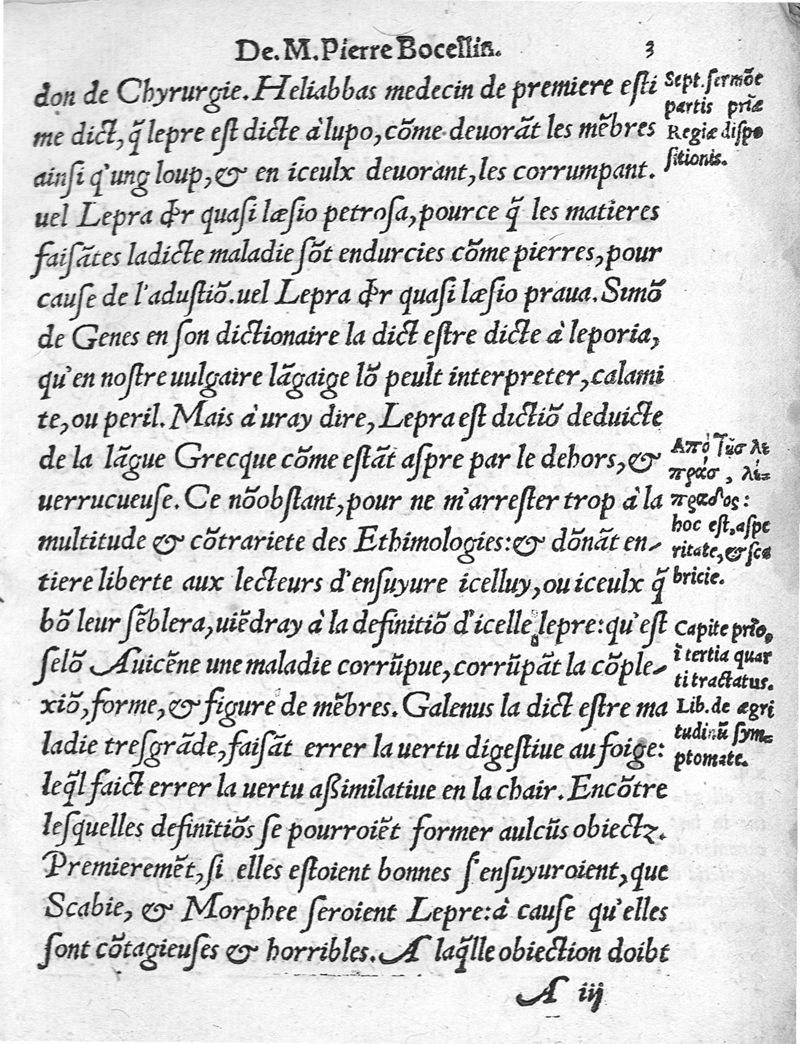 De. M. Pierre Bocellin. 3
don de Chyrurgie. Heliabbas medecin de premiere esti
me dict, q̃ lepre est dicte à lupo, cõme deuorãt les mẽbres
ainsi q'ung loup, & en iceulx deuorant, les corrumpant.
uel Lepra dr̃ quasi læsio petrosa, pource q̃ les matieres
faisãtes ladicte maladie sõt endurcies cõme pierres, pour
cause de l'adustiõ. uel Lepra dr̃ quasi læsio praua. Simõ
de Genes en son dictionaire la dict estre dicte à leporia,
qu'en nostre uulgaire lãgaige lõ peult interpreter, calami
te, ou peril. Mais à uray dire, Lepra est dictiõ deduicte
de la lãgue Grecque cõme estãt aspre par le dehors, &
uerrucueuse. Ce nõobstant, pour ne m'arrester trop à la
multitude & cõtrariete des Ethimologies: & dõnãt en-
tiere liberte aux lecteurs d'ensuyure icelluy, ou iceulx q̃
bõ leur sẽblera, uiẽdray à la definitiõ d'icelle lepre: qu'est
selõ Auicẽne une maladie corrũpue, corrũpãt la cõple-
xiõ, forme, & figure de mẽbres. Galenus la dict estre ma
ladie tresgrãde, faisãt errer la uertu digestiue au foige:
leq̃l faict errer la uertu aßimilatiue en la chair. Encõtre
lesquelles definitiõs se pourroiẽt former aulcũs obiectz.
Premieremẽt, si elles estoient bonnes s'ensuyuroient, que
Scabie, & Morphee seroient Lepre: à cause qu'elles
sont cõtagieuses & horribles. A laq̃lle obiection doibt
A iij
Sept. sermõe
partis priæ
Regiæ dispo
sitionis.
Ἀπὸ τῆσ λέ
πρασ, λέ-
πραδος:
hoc est, aspe
ritate, & sca
bricie.
Capite prĩo,
ĩ tertia quar
ti tractatus.
Lib. de ægri
tudinũ sym-
ptomate.